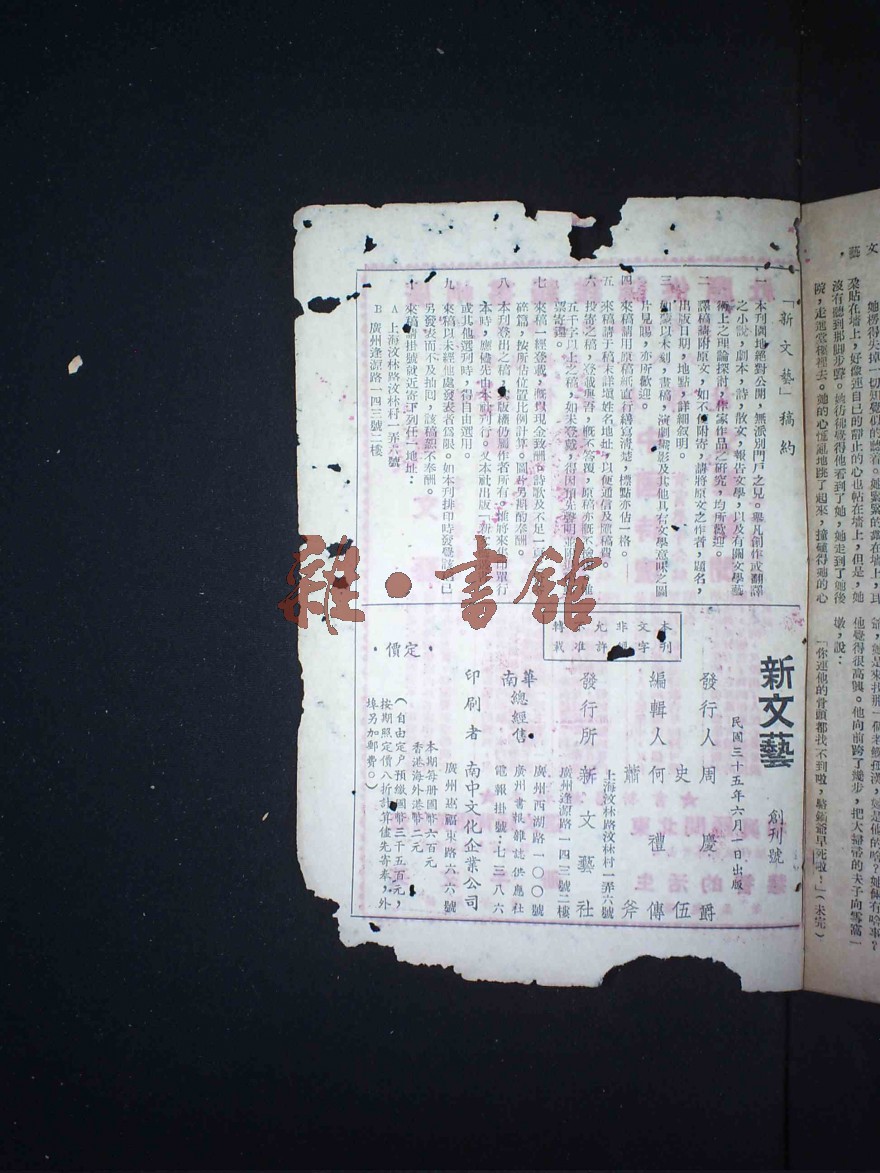 「新文藝」稿約
一 本刊園地絕對公開，無派別門戶之見。舉凡創作或翻譯
之小說，劇本，詩，散文，報告文學，以及有關文學藝
術上之理論探討，作家作品之研究，均所歡迎。
二 譯稿請附原文，如不便附寄，請將原文之作者，題名，
出版日期，地點，詳細敘明。
三 如蒙以木刻，畫稿，演劇攝影及其他具有文學意味之圖
片見賜，亦所歡迎。
四 來稿請用原稿紙直行繕寫清楚，標點亦佔一格。
五 來稿請于稿末詳塡姓名地址，以便通信及匯稿費。
六 投寄之稿，登載與否，概不答覆，原稿亦概不檢還，
五千字以上之稿，如未登載，得因預先聲明並附
票寄還。
七 來稿一經登載，概以現金致酬。詩歌及不足一
頁篇，按所佔位置比例計算。圖片另酌奉酬。
八 本刊登出之稿，其版權仍歸作者所有。惟將來出單行
本時，應儘先由本社刊行。又本社出版
或其他選刊時，得自由選用。
九 來稿以未經他處發表者爲限。如本刊排印時發覺該稿已
另發表而不及抽回，該稿恕不奉酬。
十 來稿請掛號就近寄下列任一地址：
A 上海汶林路汶林村一弄六號
B 廣州逢源路一四三號二樓
新文藝 創刊號
民國三十五年六月一日出版
發行人 周慶爵
史伍
編輯人 何禮傳
蕭斧
本刊
文字
非經
允許
不准
轉載
上海汶林路汶林村一弄六號
發行所 新文藝社
廣州逢源路一四三號二樓
華南總經售 廣州西湖路一〇〇號
廣州書報雜誌供應社
電報掛號：七三八六
印刷者 南中文化企業公司
廣州惠福東路六六號
定價
本期每冊國幣六百元
香港海外港幣二元
（自由定戶預繳國幣三千五百元，
按期照定價八折計算儘先寄奉，外
埠另加郵費。）
雜·書館
文藝
沒有聽到那開步聲。她彷彿覺得他看到了她，她走到了她後
院，走進堂樓裡去。她的心慌亂地跳了起來，撞碰得她的心
他覺得很高興。他向前跨了幾步，把大掃帚的夫子向雪窩一
墩，說：
「你連他的骨頭都找不到啦，騎鍋爺早死啦！」（未完）